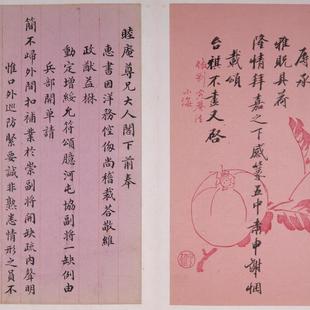 睦庵尊兄大人閣下前奉
惠書因洋務倥傯尚稽裁答敬維
政猷益楙
動定增綏允符頌臆河屯協副將一缺例由
兵部開單請
簡不啻外間扣補業於崇副將開缺疏內聲明
惟口外巡防緊要誠非熟悉情形之員不
厚承
雅貺具荷
隆情拜嘉之下感篆五中肅申謝悃
載頌
台祺不盡又啓